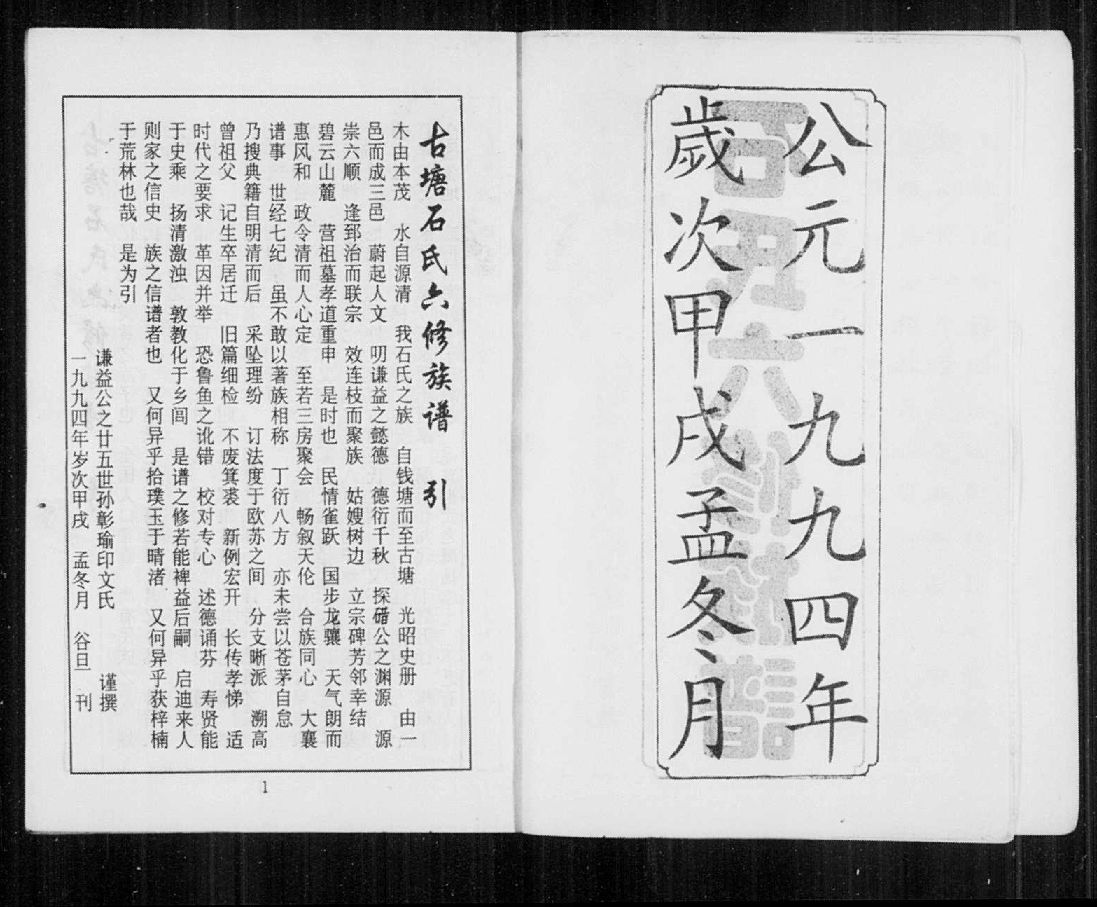 公元一九九四年
歲次甲戌孟冬月
古塘石氏六修族谱 引
木由本茂 水自源清 我石氏之族 自钱塘而至古塘 光昭史册 由一
邑而成三邑 蔚起人文 明谦益之懿德 德衍千秋 探碏公之渊源 源
崇六顺 逢郅治而联宗 效连枝而聚族 姑嫂树边 立宗碑芳邻幸结
碧云山麓 营祖墓孝道重申 是时也 民情雀跃 国步龙骧 天气朗而
惠风和 政令清而人心定 至若三房聚会 畅叙天伦 合族同心 大襄
谱事 世经七纪 虽不敢以著族相称 丁衍八方 亦未尝以苍茅自怠
乃搜典籍自明清而后 采坠理纷 订法度于欧苏之间 分支晰派 溯高
曾祖父 记生卒居迁 旧篇细检 不废箕裘 新例宏开 长传孝悌 适
时代之要求 革因并举 恐鲁鱼之讹错 校对专心 述德诵芬 寿贤能
于史乘 扬清激浊 敦教化于乡闾 是谱之修若能裨益后嗣 启迪来人
则家之信史 族之信谱者也 又何异乎拾璞玉于晴渚 又何异乎获梓楠
于荒林也哉 是为引
谦益公之廿五世孙彰瑜印文氏 谨撰
一九九四年岁次甲戌 孟冬月 谷旦 刊
1